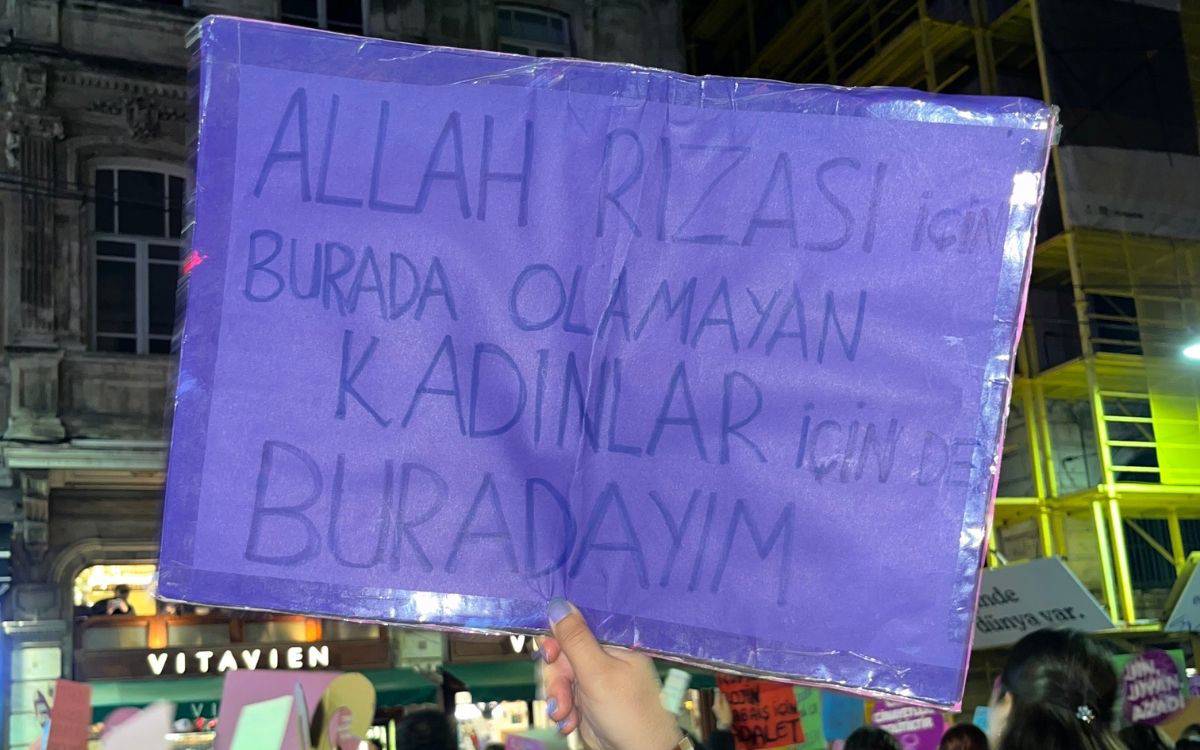 ALLAH RIZASI İÇİN
BURADA OLAMAYAN
KADINLAR İÇİN DE
BURADAYIM
VITAVIEN
dünya var.
JİN
JİYAN
AZADÎ